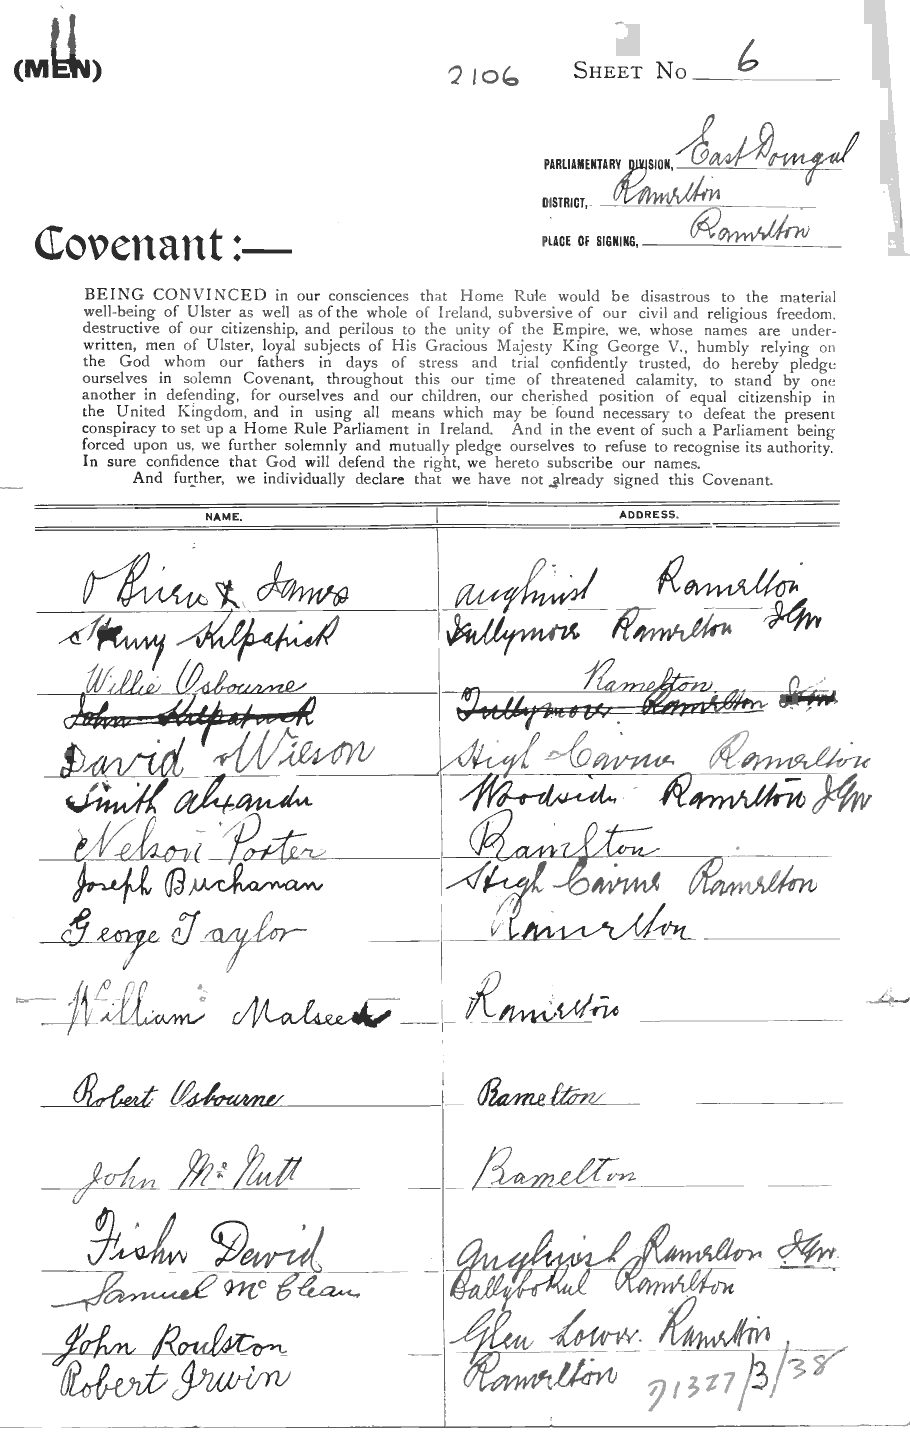 11
(MEN)
2106 SHEET No 6
PARLIAMENTARY DIVISION, East Donegal
DISTRICT, Ramelton
PLACE OF SIGNING, Ramelton
Covenant :—
BEING CONVINCED in our consciences that Home Rule would be disastrous to the material
well-being of Ulster as well as of the whole of Ireland, subversive of our civil and religious freedom,
destructive of our citizenship, and perilous to the unity of the Empire, we, whose names are under-
written, men of Ulster, loyal subjects of His Gracious Majesty King George V., humbly relying on
the God whom our fathers in days of stress and trial confidently trusted, do hereby pledge
ourselves in solemn Covenant, throughout this our time of threatened calamity, to stand by one
another in defending, for ourselves and our children, our cherished position of equal citizenship in
the United Kingdom, and in using all means which may be found necessary to defeat the present
conspiracy to set up a Home Rule Parliament in Ireland. And in the event of such a Parliament being
forced upon us, we further solemnly and mutually pledge ourselves to refuse to recognise its authority.
In sure confidence that God will defend the right, we hereto subscribe our names.
And further, we individually declare that we have not already signed this Covenant.
NAME. ADDRESS.
O'Brien James Aughnish Ramelton
Henry Kilpatrick Tullymore Ramelton
Willie Osbourne Ramelton
John Kilpatrick Tullymore Ramelton
David Wilson High Cairne Ramelton
Smith Alexander Woodside Ramelton
Nelson Porter Ramelton
Joseph Buchanan High Cairne Ramelton
George Taylor Ramelton
William Malseed Ramelton
Robert Osbourne Ramelton
John McNutt Ramelton
Fisher David Aughnish Ramelton
Samuel McClean Ramelton
John Roulston Glen Lower. Ramelton
Robert Irwin Ramelton
D1327/3/38